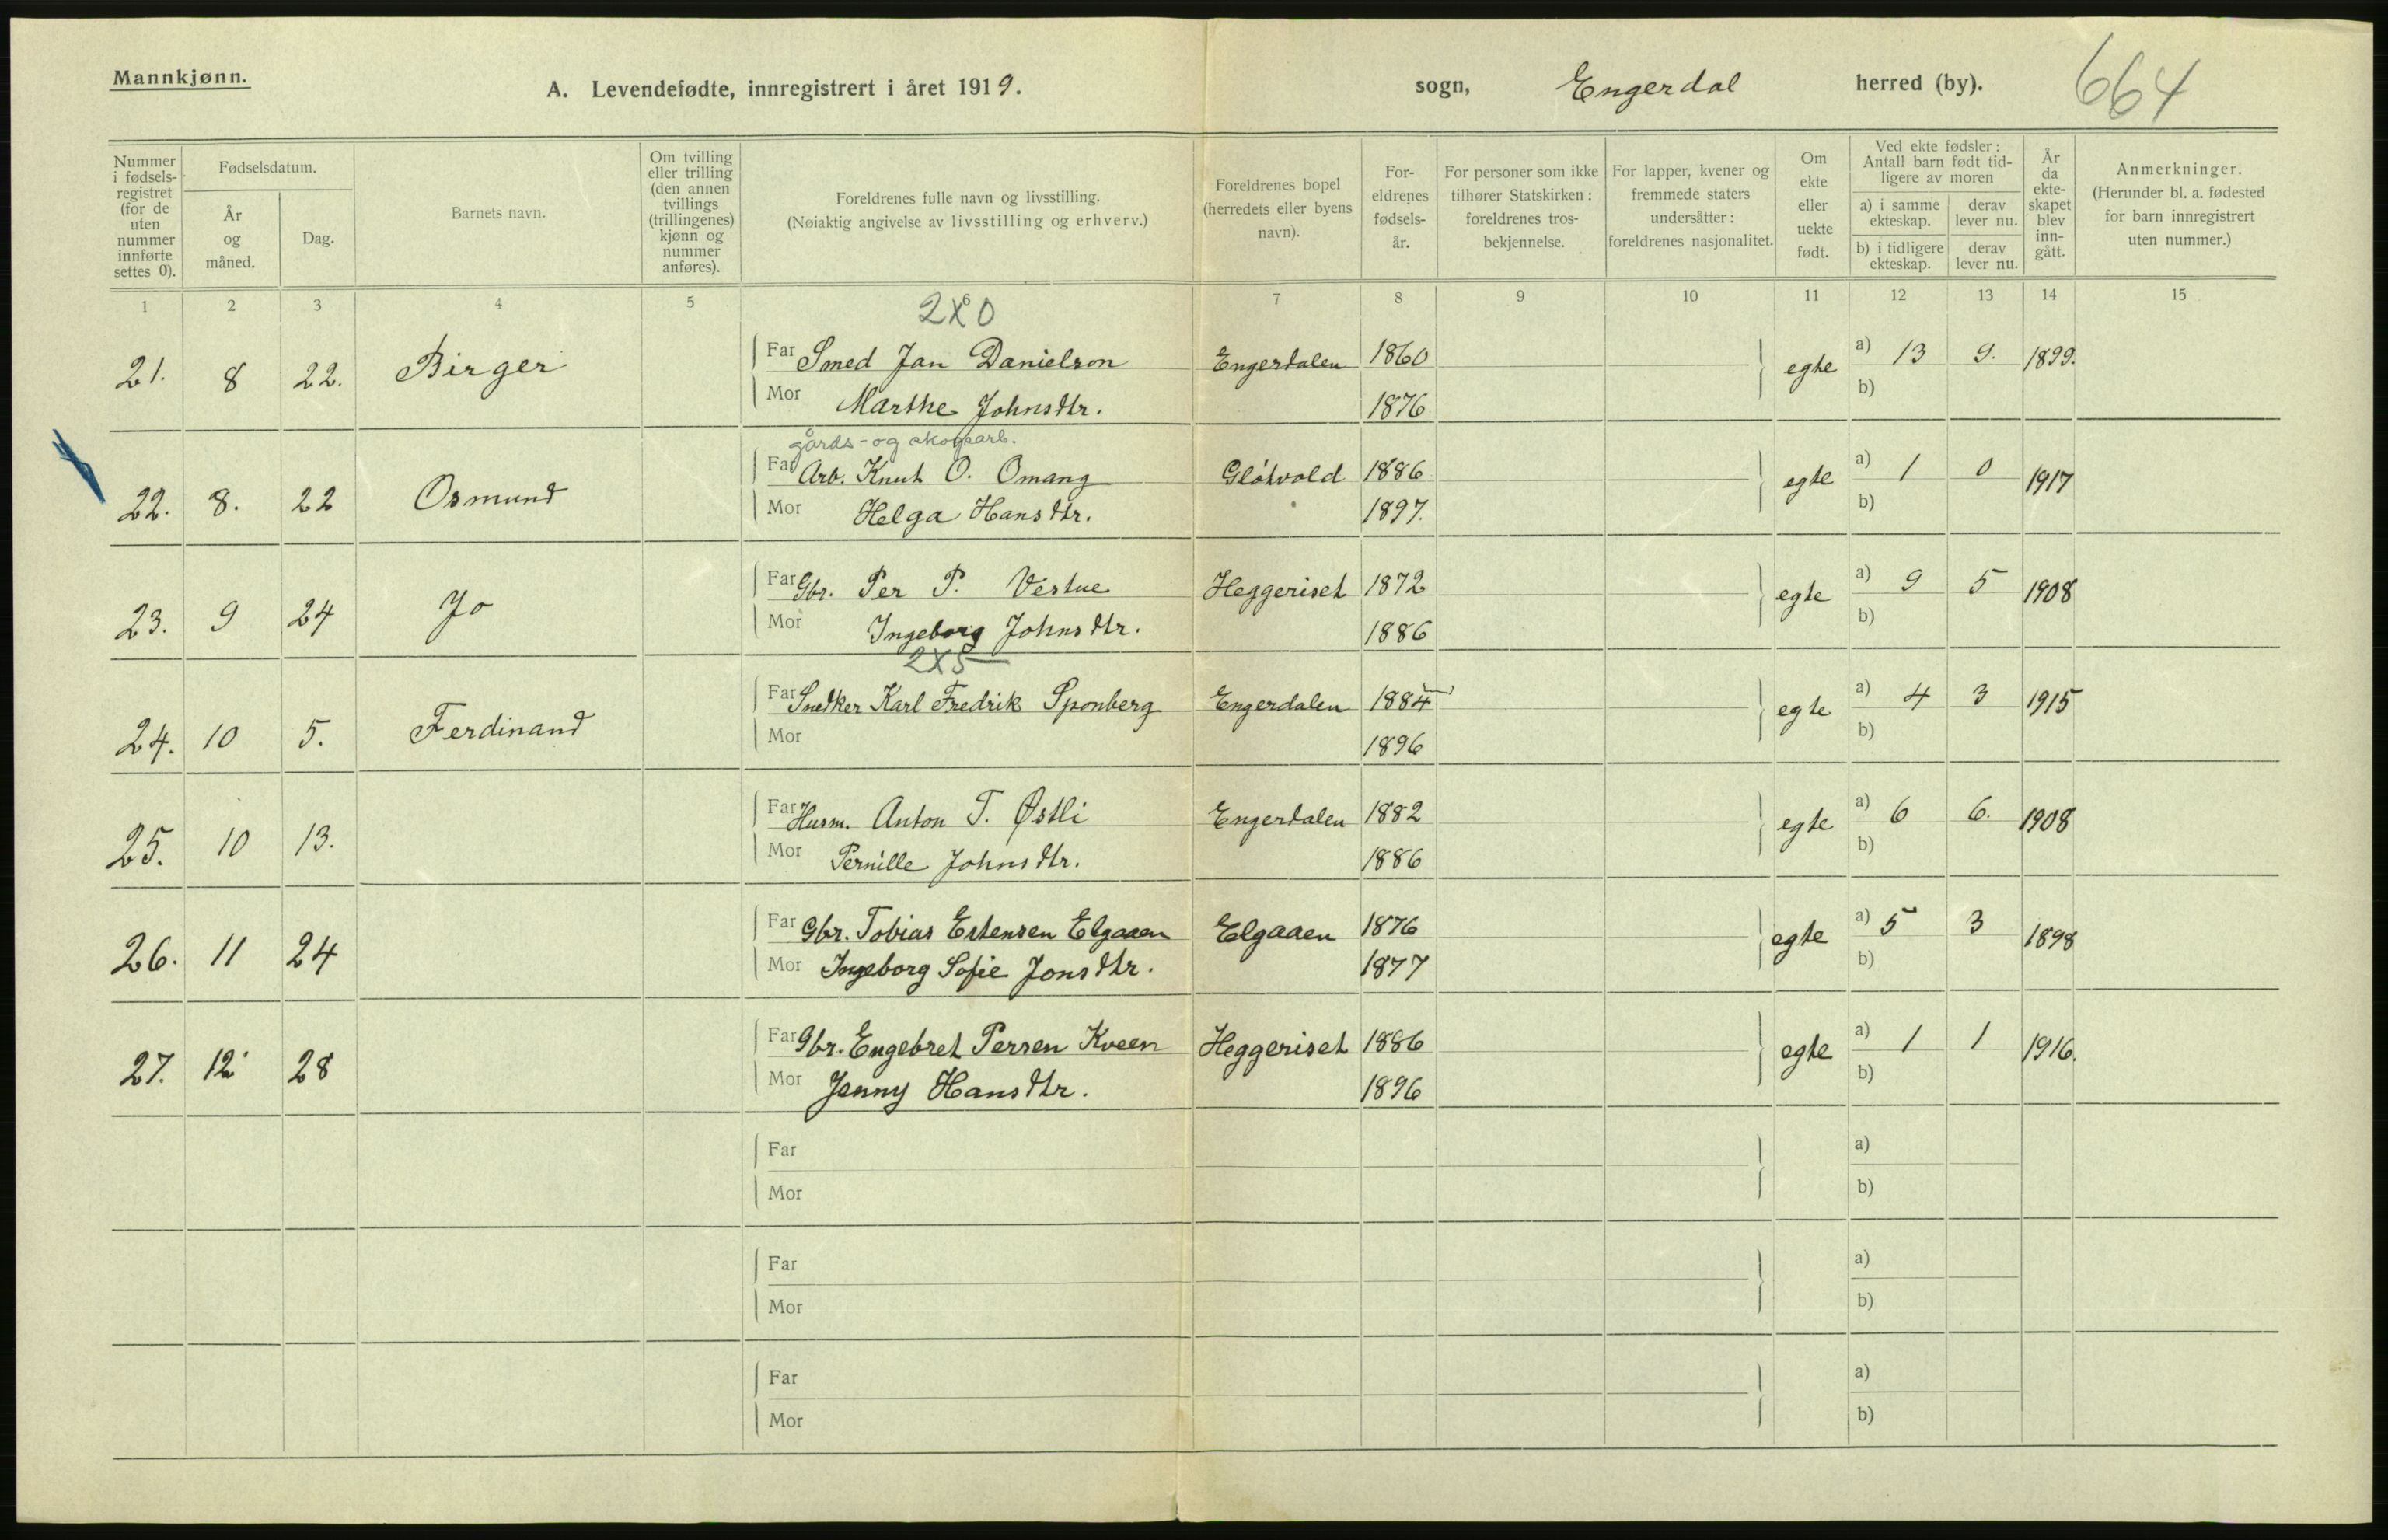 Mannkjønn.
A. Levendefødte, innregistrert i året 1919.
sogn, Engerdal herred (by).
664
Nummer i fødsels-registret (for de uten nummer innførte settes 0).
Fødselsdatum.
År og måned.
Dag.
Barnets navn.
Om tvilling eller trilling (den annen tvillings (trillingenes) kjønn og nummer anføres).
Foreldrenes fulle navn og livsstilling.
(Nøiaktig angivelse av livsstilling og erhverv.)
Foreldrenes bopel (herredets eller byens navn).
For-eldrenes fødsels-år.
For personer som ikke tilhører Statskirken: foreldrenes tros-bekjennelse.
For lapper, kvener og fremmede staters undersåtter: foreldrenes nasjonalitet.
Om ekte eller uekte født.
Ved ekte fødsler: Antall barn født tid-ligere av moren
a) i samme ekteskap.
derav lever nu.
b) i tidligere ekteskap.
derav lever nu.
År da ekte-skapet blev inn-gått.
Anmerkninger.
(Herunder bl. a. fødested for barn innregistrert uten nummer.)
1 2 3 4 5 6 7 8 9 10 11 12 13 14 15
2X0
21. 8 22. Birger Far Smed Jan Danielson Engerdalen 1860 egte a) 13 9. 1899.
Mor Marthe Johnsdtr. 1876 b)
gårds- og skogsarb.
22. 8. 22 Osmund Far Arb. Knut O. Omang Gløtvold 1886 egte a) 1 0 1917
Mor Helga Hansdtr. 1897. b)
23. 9 24 Jo Far Gbr. Per P. Vestue Heggeriset 1872 egte a) 9 5 1908
Mor Ingeborg Johnsdtr. 1886 b)
2X5
24. 10 5. Ferdinand Far Snedker Karl Fredrik Sponberg Engerdalen 1884 egte a) 4 3 1915
Mor 1896 b)
25. 10 13. Far Husm. Anton T. Østli Engerdalen 1882 egte a) 6 6. 1908
Mor Pernille Johnsdtr. 1886 b)
26. 11 24 Far Gbr. Tobias Estensen Elgaaen Elgaaen 1876 egte a) 5 3 1898
Mor Ingeborg Sofie Jonsdtr. 1877 b)
27. 12 28 Far Gbr. Engebret Persen Kveen Heggeriset 1886 egte a) 1 1 1916.
Mor Jenny Hansdtr. 1896 b)
Far a)
Mor b)
Far a)
Mor b)
Far a)
Mor b)